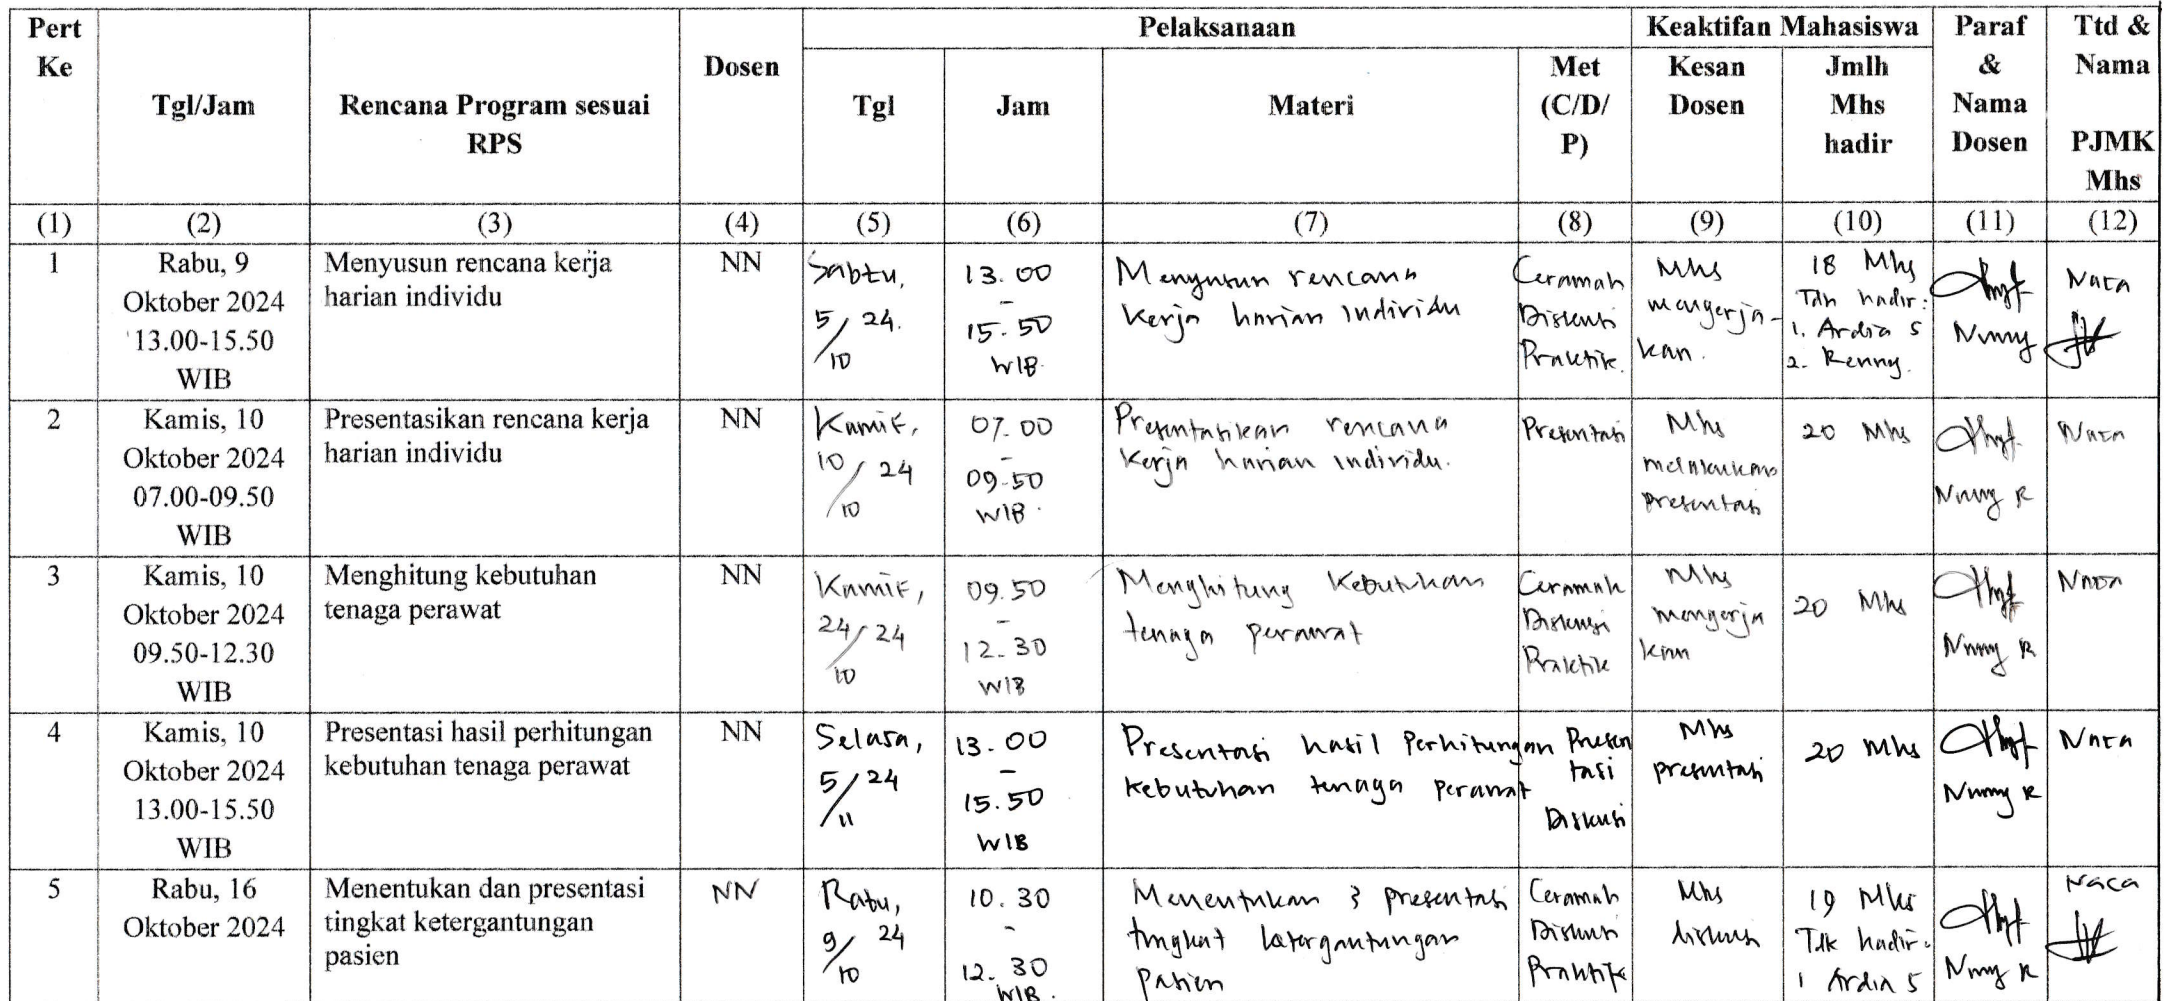 Pert Ke
Tgl/Jam
Rencana Program sesuai RPS
Dosen
Pelaksanaan
Tgl
Jam
Materi
Met (C/D/P)
Keaktifan Mahasiswa
Kesan Dosen
Jmlh Mhs hadir
Paraf & Nama Dosen
Ttd & Nama PJMK Mhs
(1) (2) (3) (4) (5) (6) (7) (8) (9) (10) (11) (12)
1
Rabu, 9
Oktober 2024
13.00-15.50
WIB
Menyusun rencana kerja
harian individu
NN
Sabtu,
5/10 24.
13.00
-
15.50
WIB.
Menyusun rencana
Kerja harian individu
Ceramah
Diskusi
Praktik.
Mhs
mengerja-
kan.
18 Mhs
Tdk hadir:
1. Ardia S
2. Renny.
Nunny
Naca
2
Kamis, 10
Oktober 2024
07.00-09.50
WIB
Presentasikan rencana kerja
harian individu
NN
Kamis,
10/10 24
07.00
-
09.50
WIB.
Presentasikan rencana
Kerja harian individu.
Presentasi
Mhs
melakukan
presentasi
20 Mhs
Nunny R
Naca
3
Kamis, 10
Oktober 2024
09.50-12.30
WIB
Menghitung kebutuhan
tenaga perawat
NN
Kamis,
24/10 24
09.50
-
12.30
WIB
Menghitung Kebutuhan
tenaga perawat
Ceramah
Diskusi
Praktik
Mhs
mengerja
kan
20 Mhs
Nunny R
Naca
4
Kamis, 10
Oktober 2024
13.00-15.50
WIB
Presentasi hasil perhitungan
kebutuhan tenaga perawat
NN
Selasa,
5/11 24
13.00
-
15.50
WIB
Presentasi hasil Perhitungan
kebutuhan tenaga perawat
Presen
tasi
Diskusi
Mhs
presentasi
20 Mhs
Nunny R
Naca
5
Rabu, 16
Oktober 2024
Menentukan dan presentasi
tingkat ketergantungan
pasien
NN
Rabu,
9/10 24
10.30
-
12.30
WIB.
Menentukan & presentasi
tingkat ketergantungan
pasien
Ceramah
Diskusi
Praktik
Mhs
diskusi
19 Mhs
Tdk hadir:
1 Ardia S
Nunny R
Naca